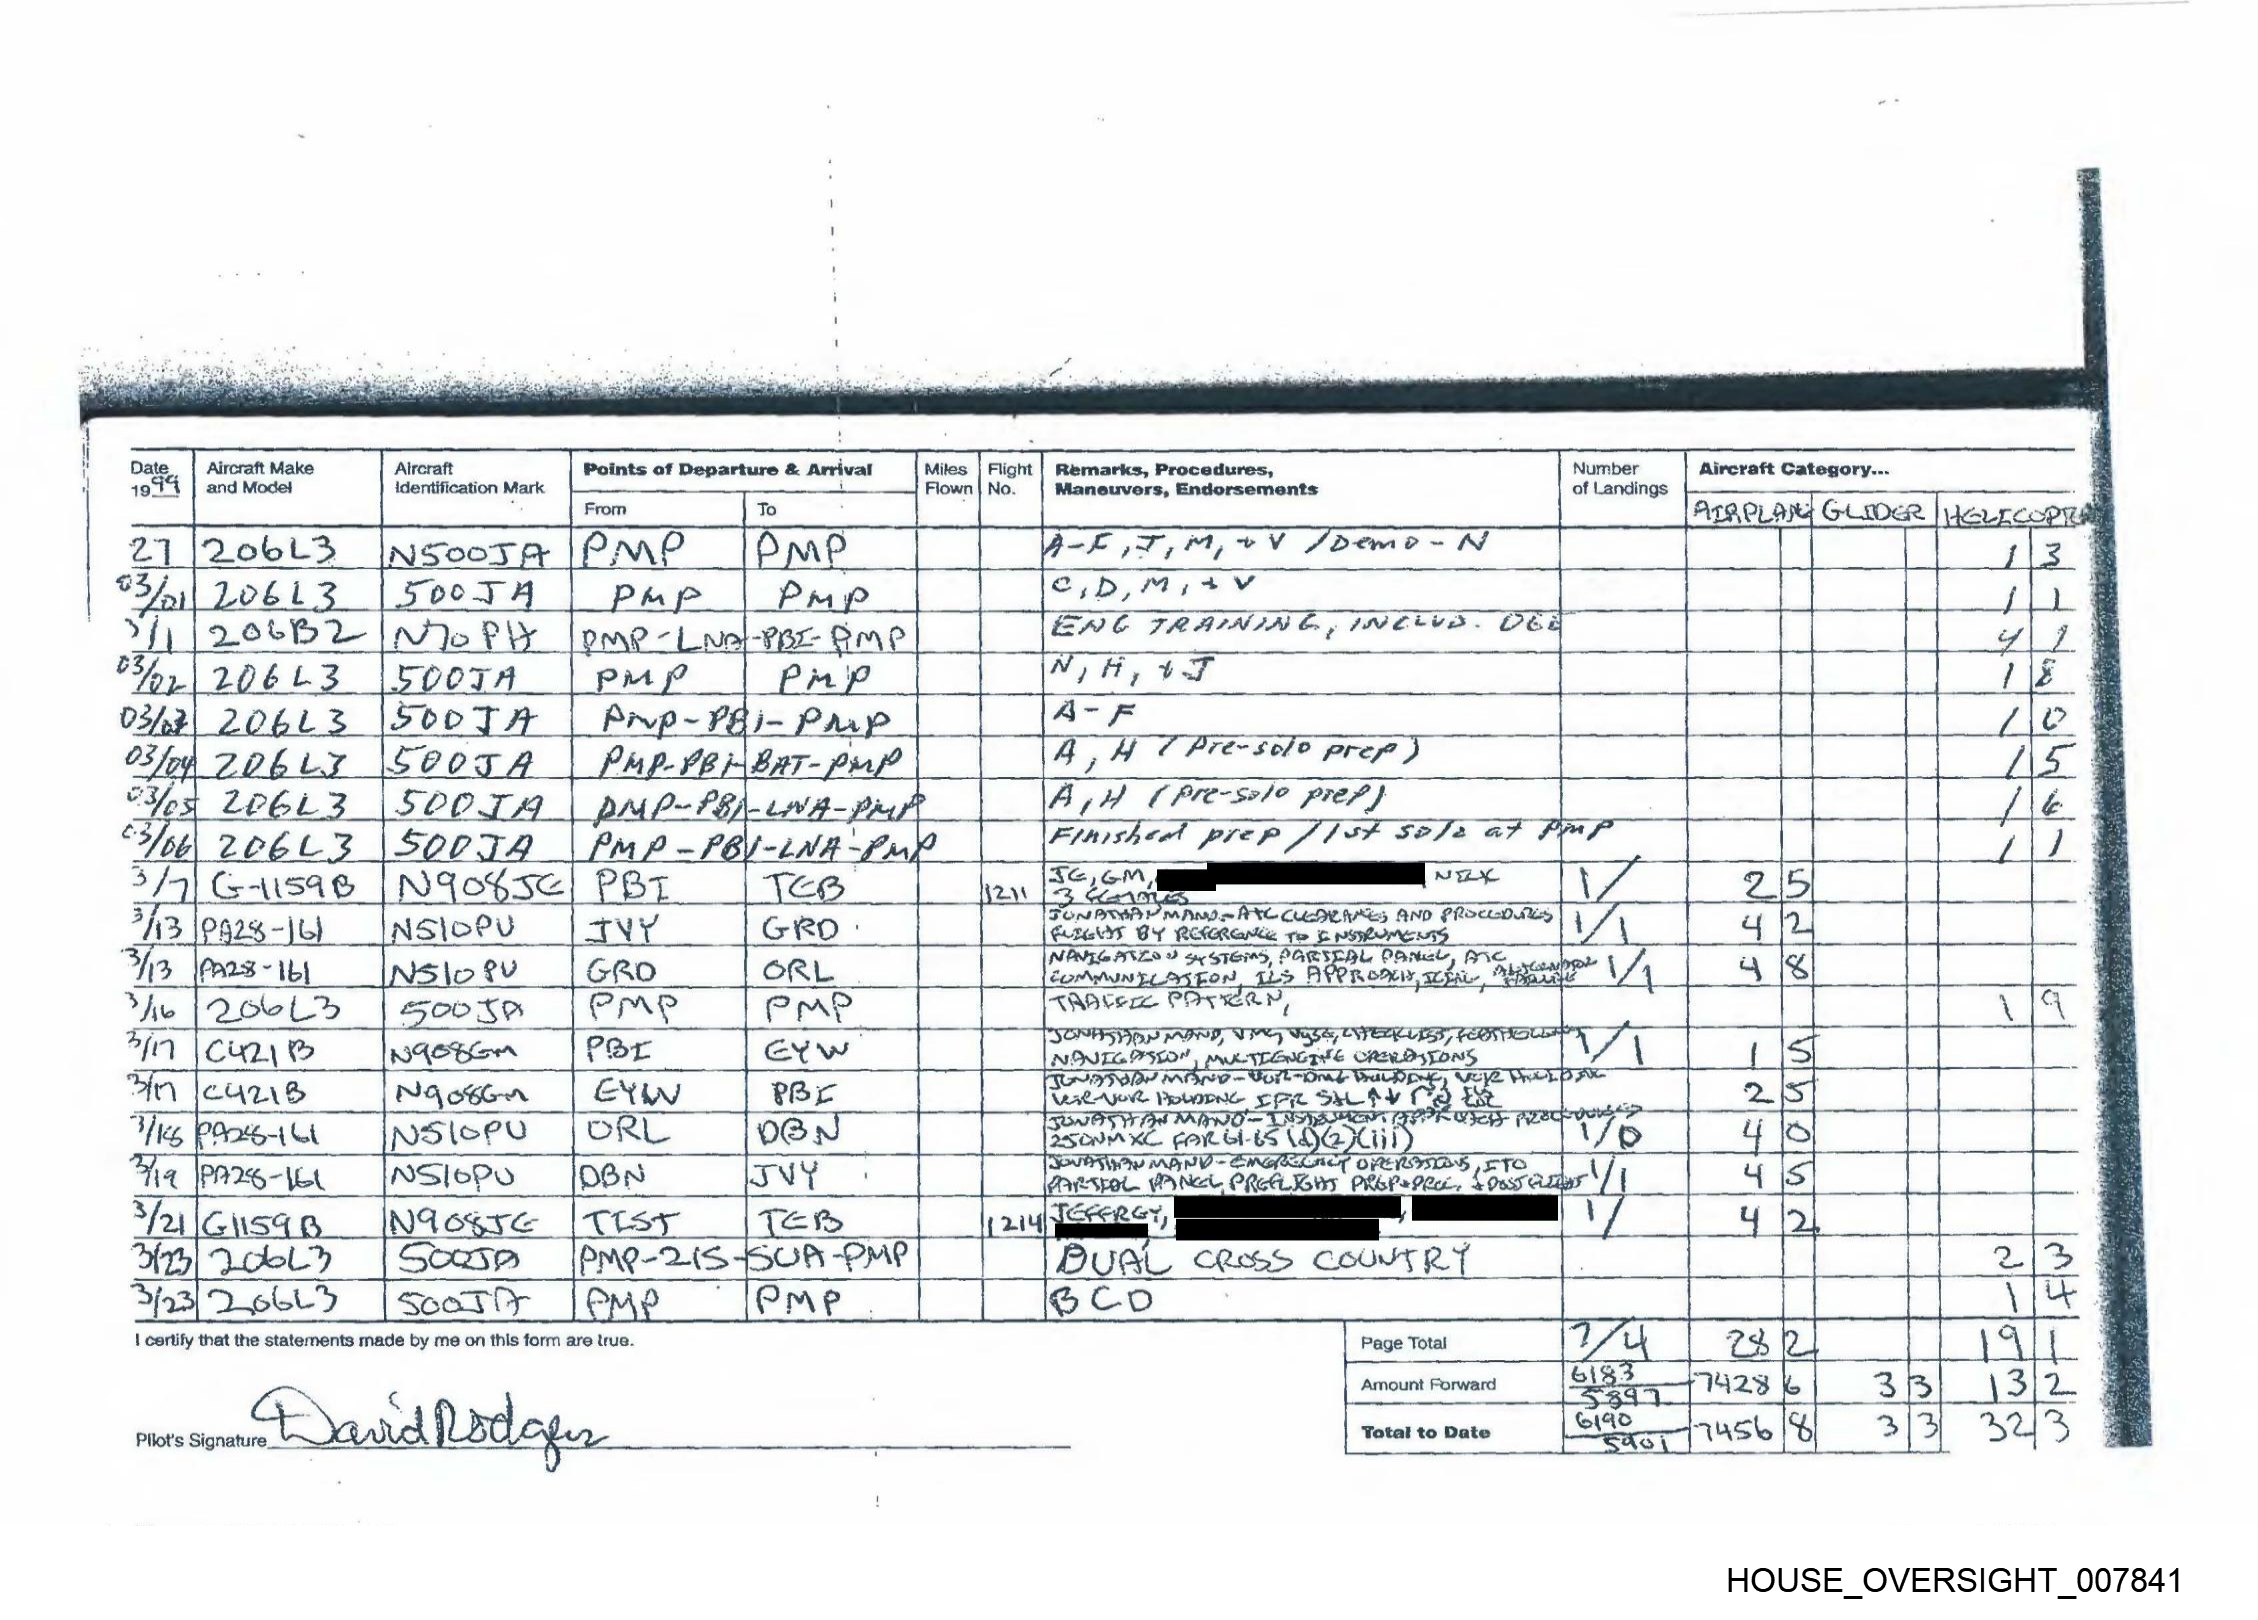 Date 1999 Aircraft Make and Model Aircraft Identification Mark Points of Departure & Arrival Miles Flown Flight No. Remarks, Procedures, Maneuvers, Endorsements Number of Landings Aircraft Category...
From To AIRPLANE GLIDER HELICOPTE
27 206L3 N500JA PMP PMP A-F, J, M, + V / Demo - N 1 3
03/01 206L3 500JA PMP PMP C, D, M, + V 1 1
3/1 206B2 N70PH PMP-LNA-PBI-PMP ENG TRAINING, INCLUD. 4 1
03/02 206L3 500JA PMP PMP N, H, + J 1 8
206L3 500JA PMP-PBI-PMP A-F 1 0
03/04 206L3 500JA PMP-PBI-BAT-PMP A, H (Pre-solo prep) 1 5
03/05 206L3 500JA PMP-PBI-LNA-PMP A, H (Pre-solo prep) 1 6
03/06 206L3 500JA PMP-PBI-LNA-PMP Finished prep / 1st solo at PMP 1 1
3/7 G-1159B N908JE PBI TEB 1211 JE, GM, 1/ 2 5
3 FEMALES
3/13 PA28-161 N510PU JVY GRD JONATHAN MANO-ATC CLEARANCES AND PROCEDURES 1/1 4 2
FLIGHT BY REFERENCE TO INSTRUMENTS
3/13 PA28-161 N510PU GRD ORL NAVIGATION SYSTEMS, PARTIAL PANEL, ATC 1/1 4 8
COMMUNICATION, ILS APPROACH,
3/16 206L3 500JA PMP PMP TRAFFIC PATTERN, 1 9
3/17 C421B N908GM PBI EYW JONATHAN MANO, VMC, VYSE, CHECKLIST, 1/1 1 5
NAVIGATION, MULTIENGINE OPERATIONS
3/17 C421B N908GM EYW PBI JONATHAN MANO-VOR-DME HOLDING, 2 5
VOR-VOR HOLDING IFR
3/18 PA28-161 N510PU ORL DBN JONATHAN MANO-INSTRUMENT APPROACH PROCEDURES 1/0 4 0
250NM XC FAR 61.65 (d)(2)(iii)
3/19 PA28-161 N510PU DBN JVY JONATHAN MANO-EMERGENCY OPERATIONS, ITO 1/1 4 5
PARTIAL PANEL, PREFLIGHT PREP+PROC, + POSTFLIGHT
3/21 G1159B N908JE TIST TEB 1214 JEFFREY, 1/ 4 2
3/23 206L3 500JA PMP-21S-SUA-PMP DUAL CROSS COUNTRY 2 3
3/23 206L3 500JA PMP PMP BCD 1 4
I certify that the statements made by me on this form are true.
Page Total 7/4 28 2 19 1
Amount Forward 6183/5897 7428 6 3 3 13 2
Total to Date 6190/5901 7456 8 3 3 32 3
Pilot's Signature David Rodgers
HOUSE_OVERSIGHT_007841